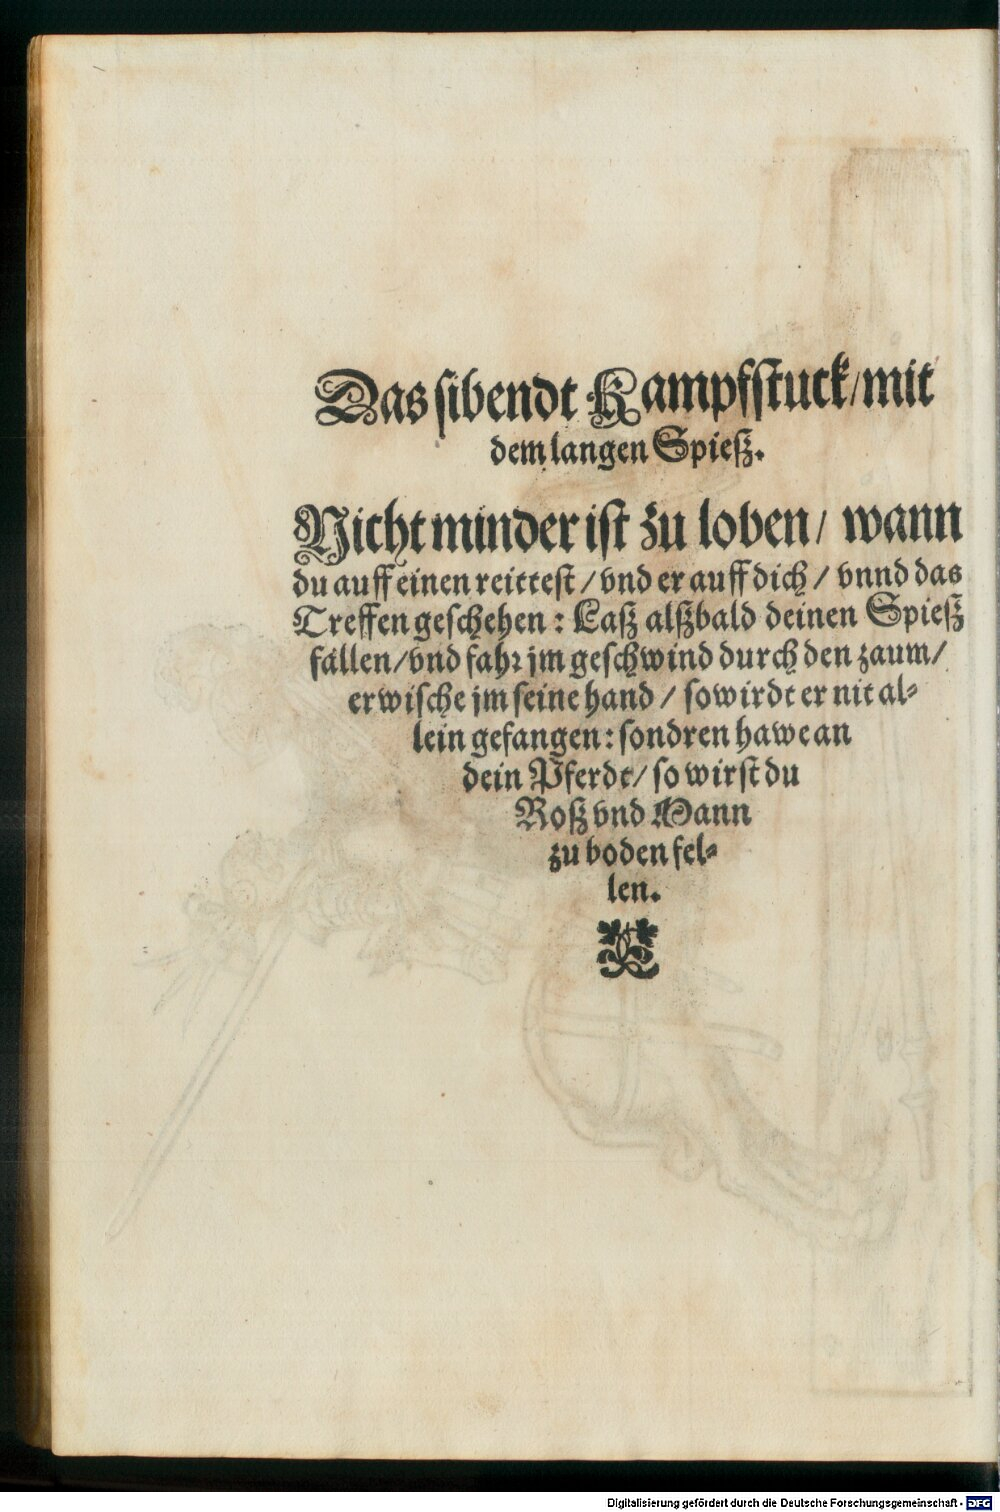 Das sibendt Kampfstuck/mit
dem langen Spieß.
Nicht minder ist zu loben/ wann
du auff einen reittest/vnd er auff dich/ vnnd das
Treffen geschehen: Laß alßbald deinen Spieß
fällen/vnd fahr jm geschwind durch den zaum/
erwische jm seine hand/ so wirdt er nit al-
lein gefangen: sondren hawe an
dein Pferdt/ so wirst du
Roß vnd Mann
zu boden fel-
len.
Digitalisierung gefördert durch die Deutsche Forschungsgemeinschaft - DFG